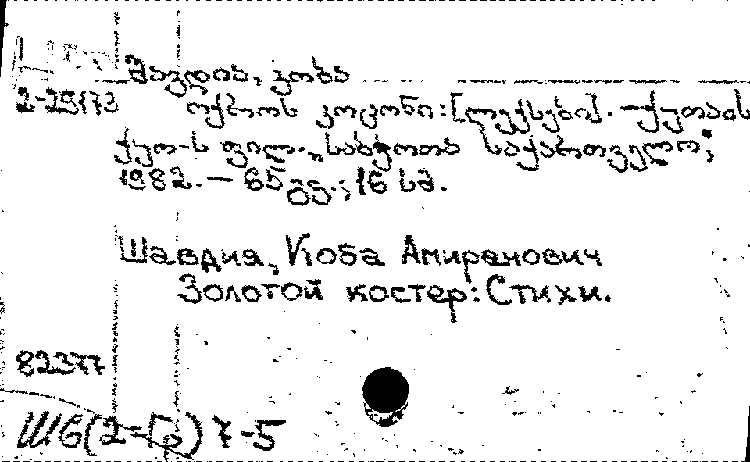 შავდია, კობა
2-29173 ოქროს კოცონი: [ლექსები]. — ქუთაის
ქუთ-ს ფილ. „საბჭოთა საქართველო",
1982. — 65 გვ.; 16 სმ.
Шавдия, Коба Амиранович
Золотой костер: Стихи.
82377
Ш6(2=Гр)7-5